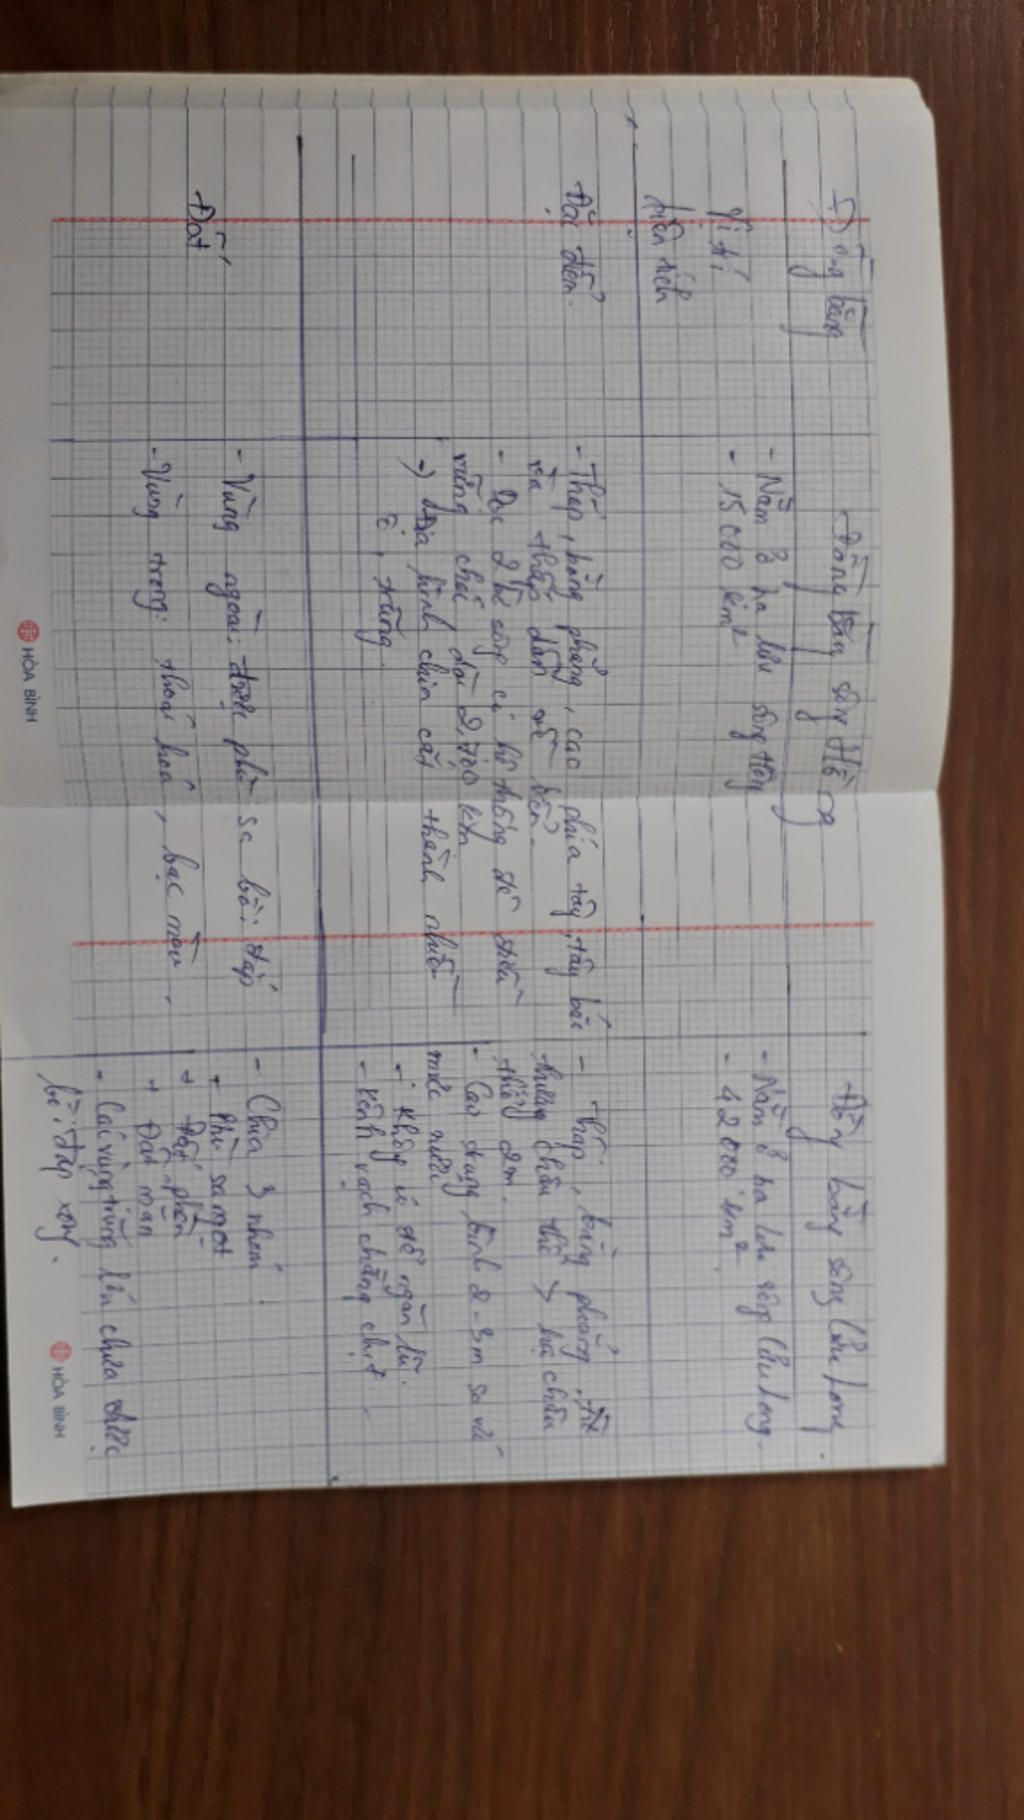 Đồng bằng
Đồng bằng sông Hồng
Đồng bằng sông Cửu Long.
Vị trí
diện tích
- Nằm ở hạ lưu sông Hồng
- 15 000 km²
- Nằm ở hạ lưu sông Cửu Long.
- 42 000 km²
Đặc điểm.
- Thấp, bằng phẳng, cao phía tây, tây bắc
và thấp dần về biển.
- Dọc 2 bờ sông có hệ thống đê điều
vững chắc dài 2,700 km
→ Địa hình chia cắt thành nhiều
ô, trũng.
- Thấp, bằng phẳng, từ
thượng châu thổ > hạ châu
thổ 2m.
- Cao trung bình 2-3m so với
mức nước
- Không có đê ngăn lũ.
- Kênh rạch chằng chịt.
Đất
- Vùng ngoài: được phù sa bồi đắp
- Vùng trong: thoái hoá, bạc màu.
- Chia 3 nhóm:
+ Phù sa ngọt
+ Đất phèn
+ Đất mặn
- Các vùng trũng lớn chưa được
bồi đắp xong.
HÒA BÌNH
HÒA BÌNH